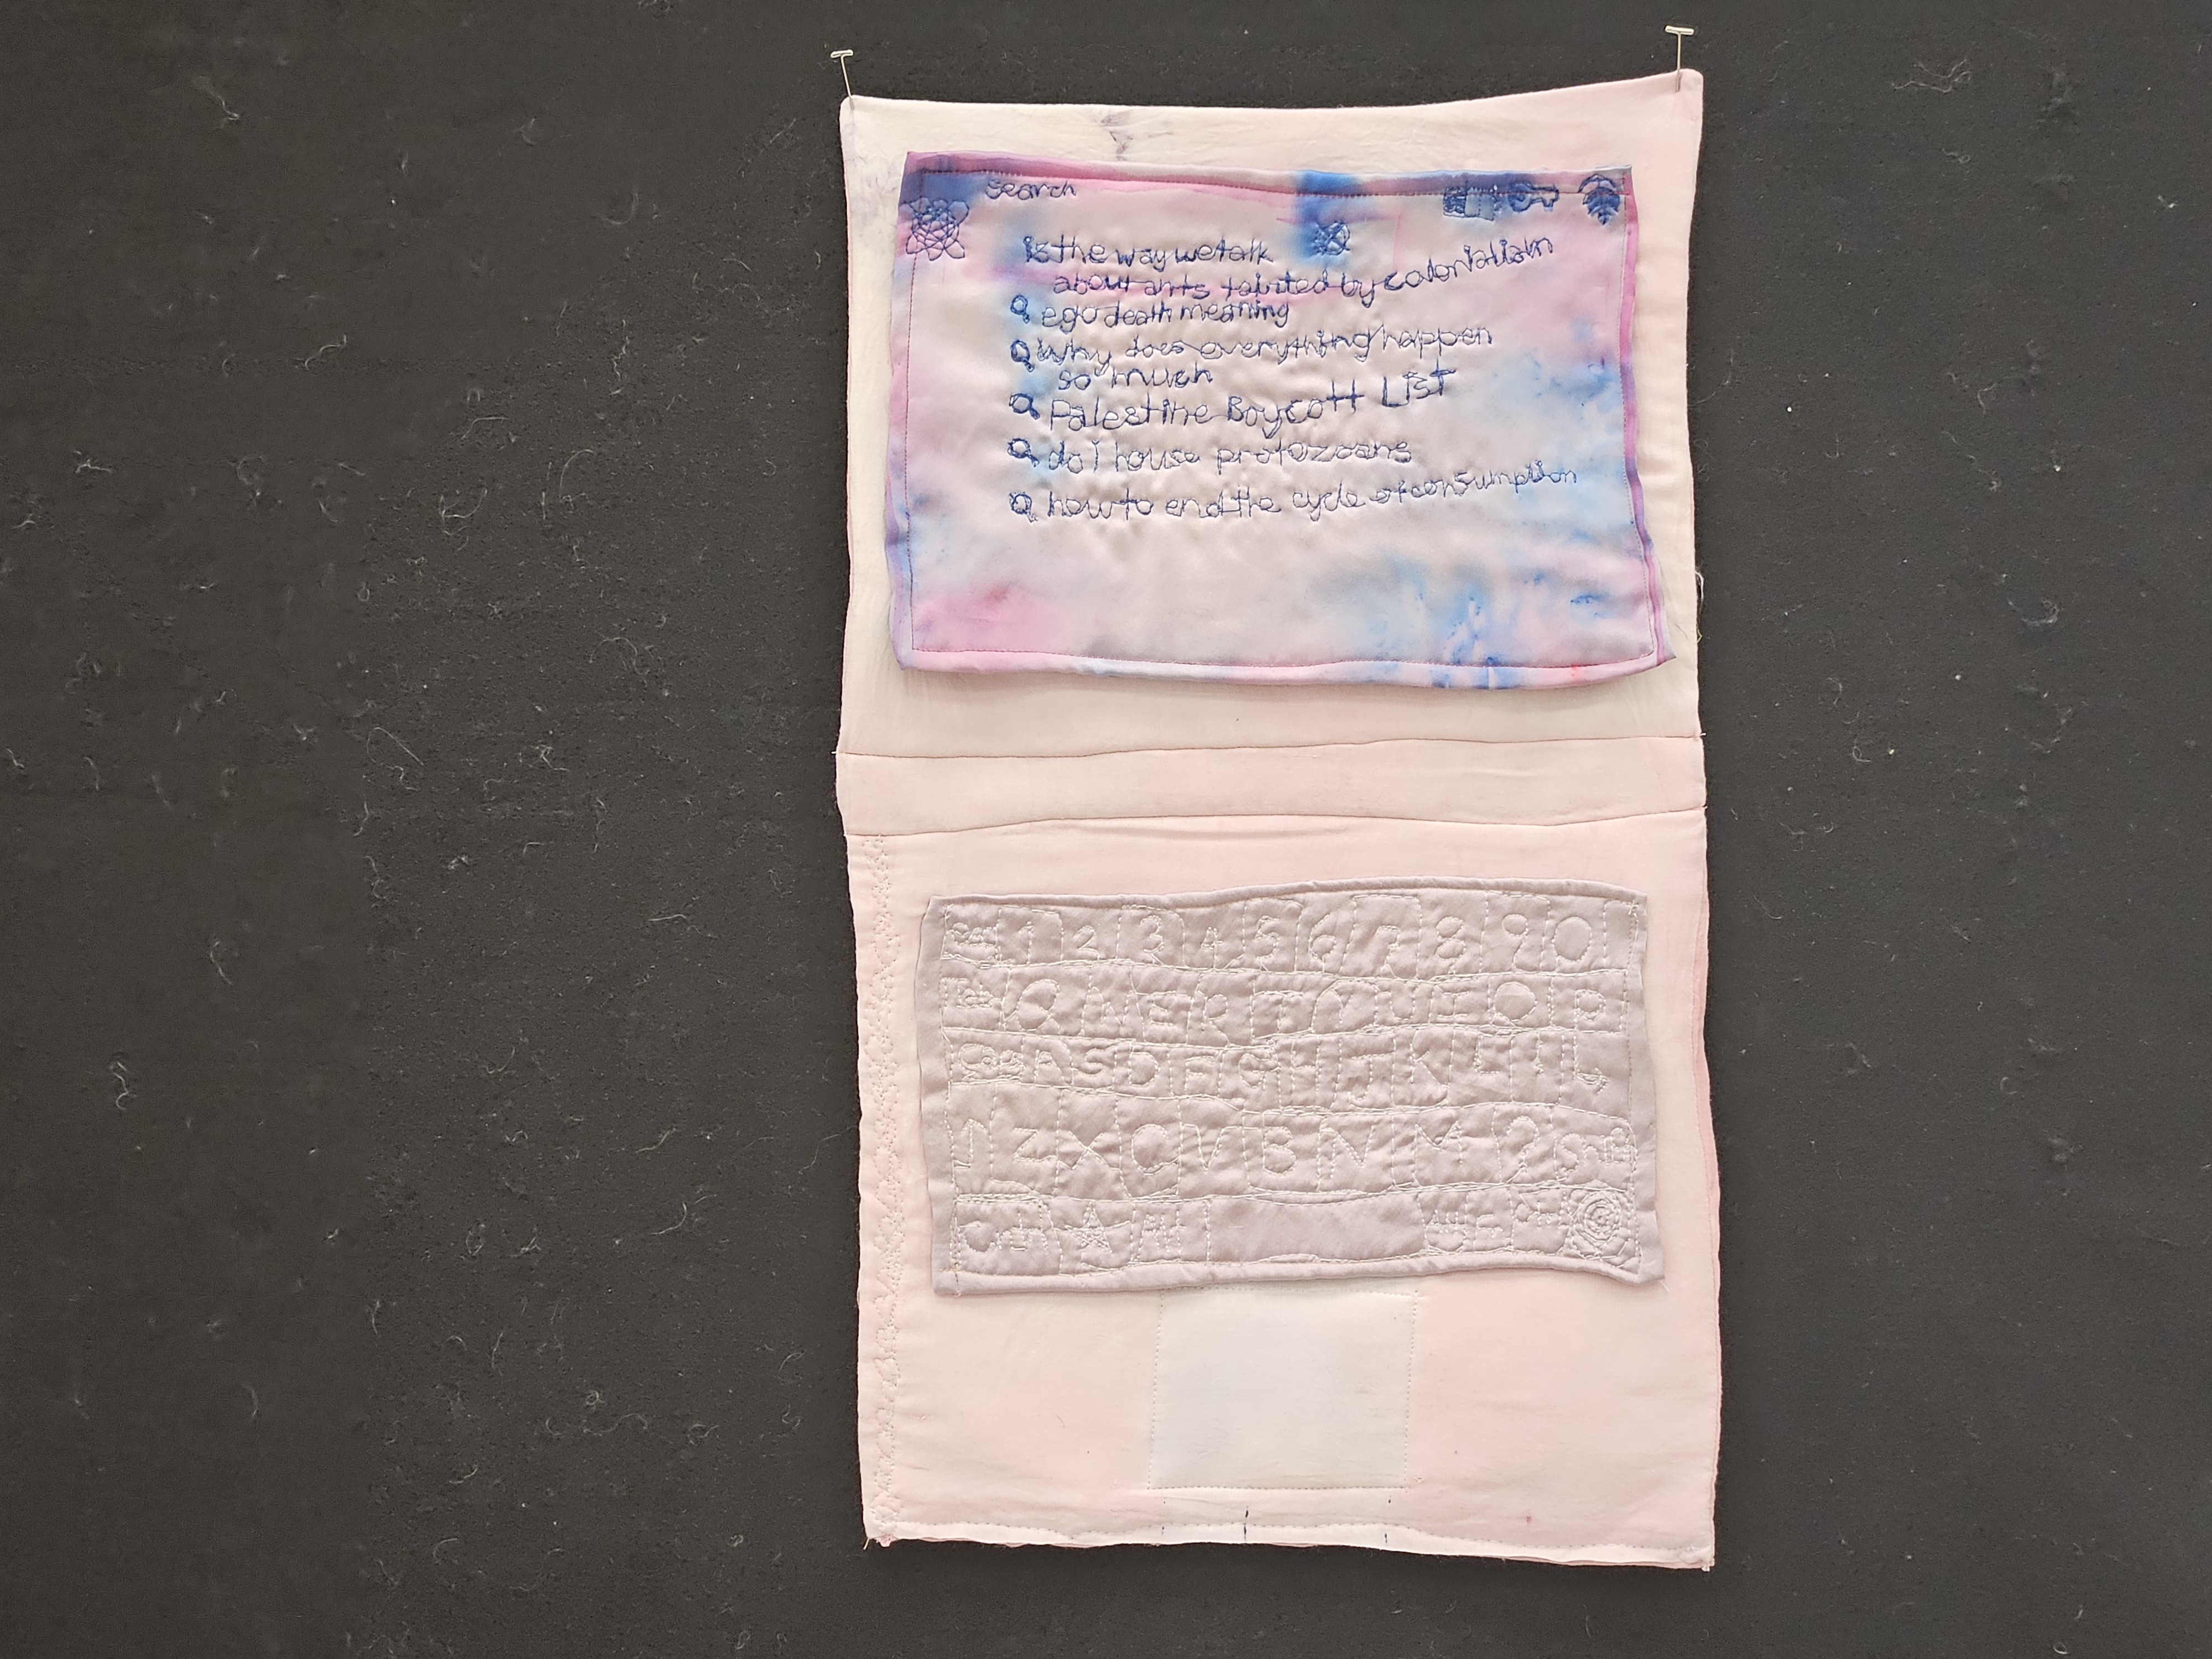 Search
is the way we talk
about ants tainted by colonialism
ego death meaning
Why does everything happen
so much
Palestine Boycott List
do I house protozoans
how to end the cycle of consumption
Esc 1 2 3 4 5 6 7 8 9 0
Tab Q W E R T Y U I O P
Caps A S D F G H J K L
Z X C V B N M ? Shift
Ctrl Alt